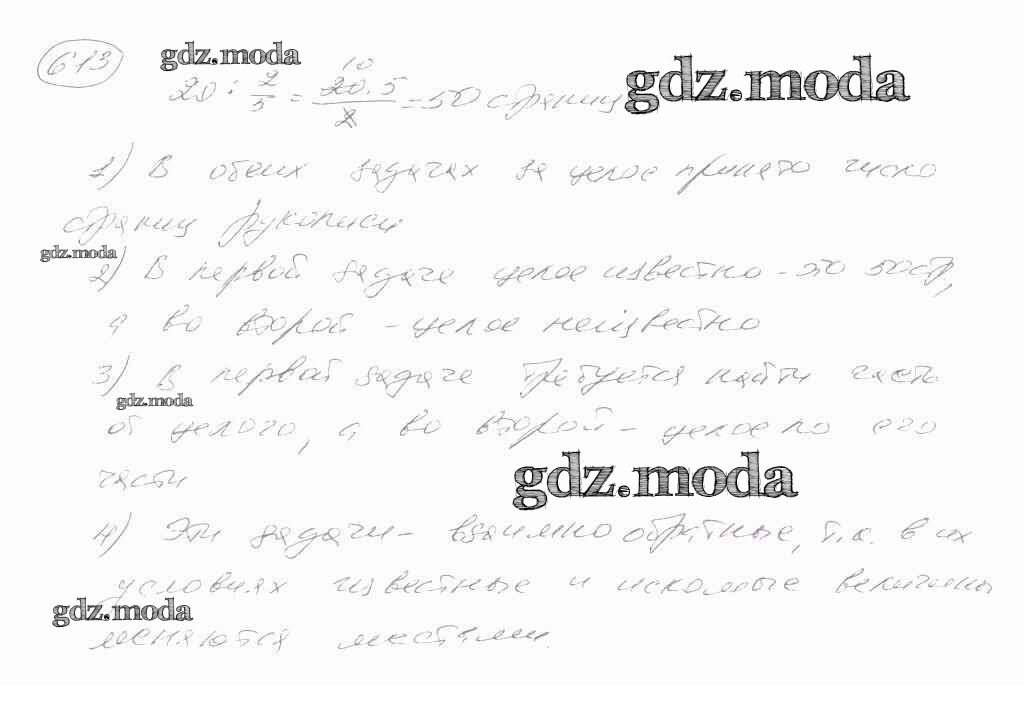 613 gdz.moda
20 : 2/5 = 20·5/2 = 50 страниц gdz.moda
10
1) В обеих задачах за целое принято число
страниц рукописи
gdz.moda
2) В первой задаче целое известно - это 50 стр,
а во второй - целое неизвестно
3) В первой задаче требуется найти часть
gdz.moda
от целого, а во второй - целое по его
части
gdz.moda
4) Эти задачи - взаимно обратные, т.к. в их
условиях известные и искомые величины
gdz.moda
меняются местами.